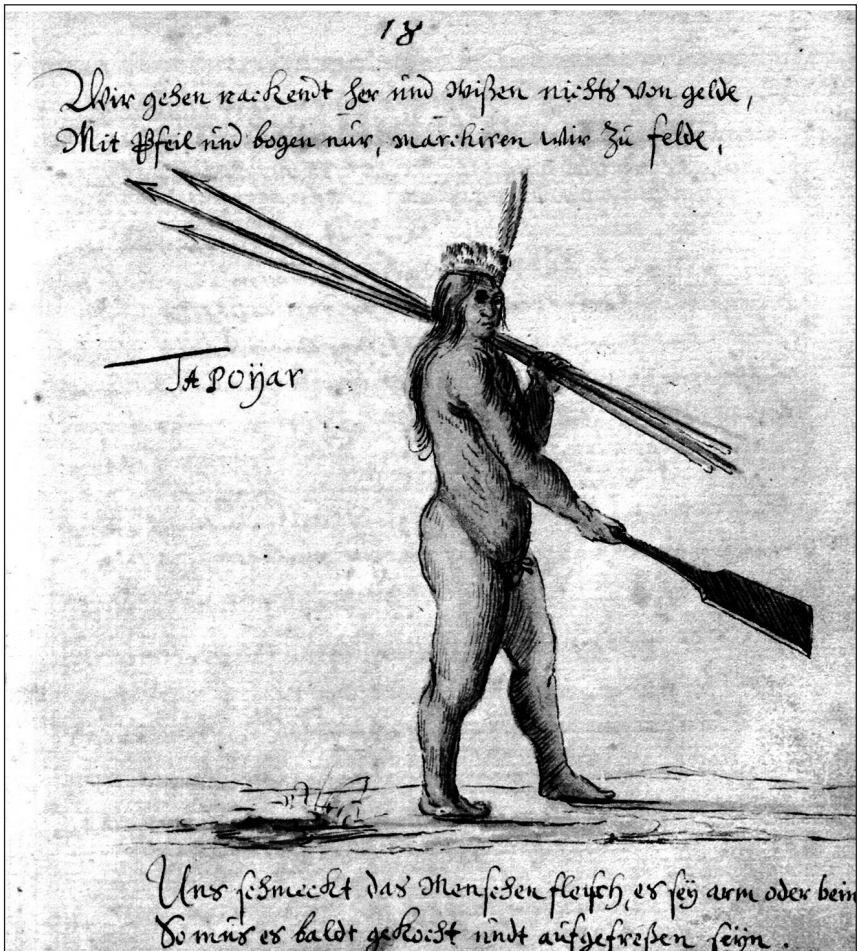 18
Wir gehen nackendt her und wißen nichts von gelde,
Mit Pfeil und bogen nur, marchiren wir zu felde,
TAPOÿar
Uns schmeckt das Menschen fleisch, es seÿ arm oder bein
So mus es baldt gekocht undt aufgefreßen seÿn